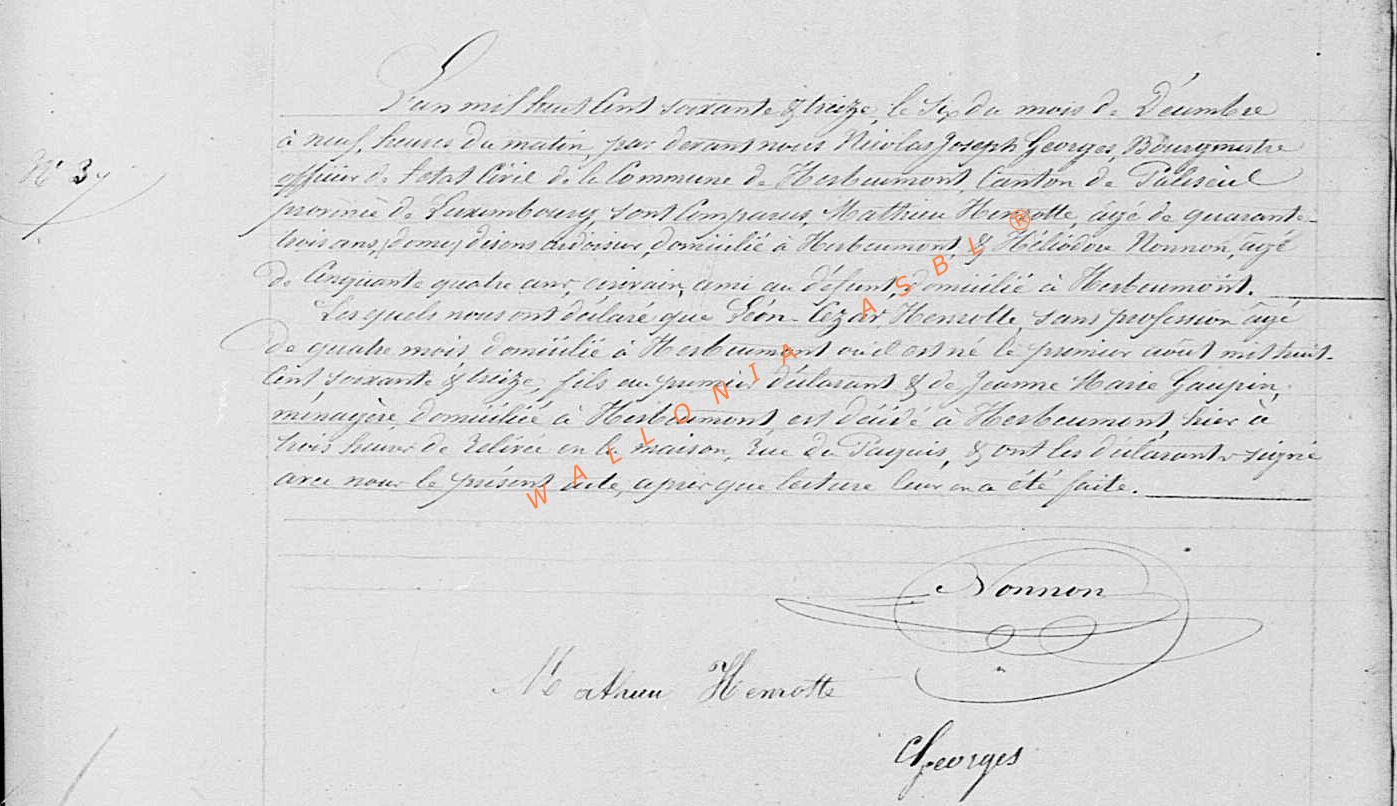 L'an mil huit cent soixante & treize, le six du mois de Décembre
à neuf heures du matin, par devant nous Nicolas Joseph Georges, Bourgmestre
N° 37
officier de l'etat Civil de la Commune de Herbeumont, Canton de Paliseul
province de Luxembourg sont Comparus, Mathieu Henrotte, âgé de quarante-
trois ans, disons ardoisier, domicilié à Herbeumont, & Héliodore Nonnon, âgé
de Cinquante quatre ans, écrivain, ami au défunt, domicilié à Herbeumont.
Les quels nous ont déclaré que Léon-Cézar Henrotte, sans profession âgé
de quatre mois domicilié à Herbeumont où il est né le premier août mil huit-
cent soixante & treize, fils du premier déclarant & de Jeanne Marie Gaupin,
ménagère, domiciliée à Herbeumont, est décédé à Herbeumont, hier à
trois heures de relevée en la maison, Rue du Paquis, & ont les déclarants signé
avec nous le présent acte, après que lecture leur en a été faite.
WALLONIA ASBL ®
Nonnon
Mathieu Henrotte
Georges